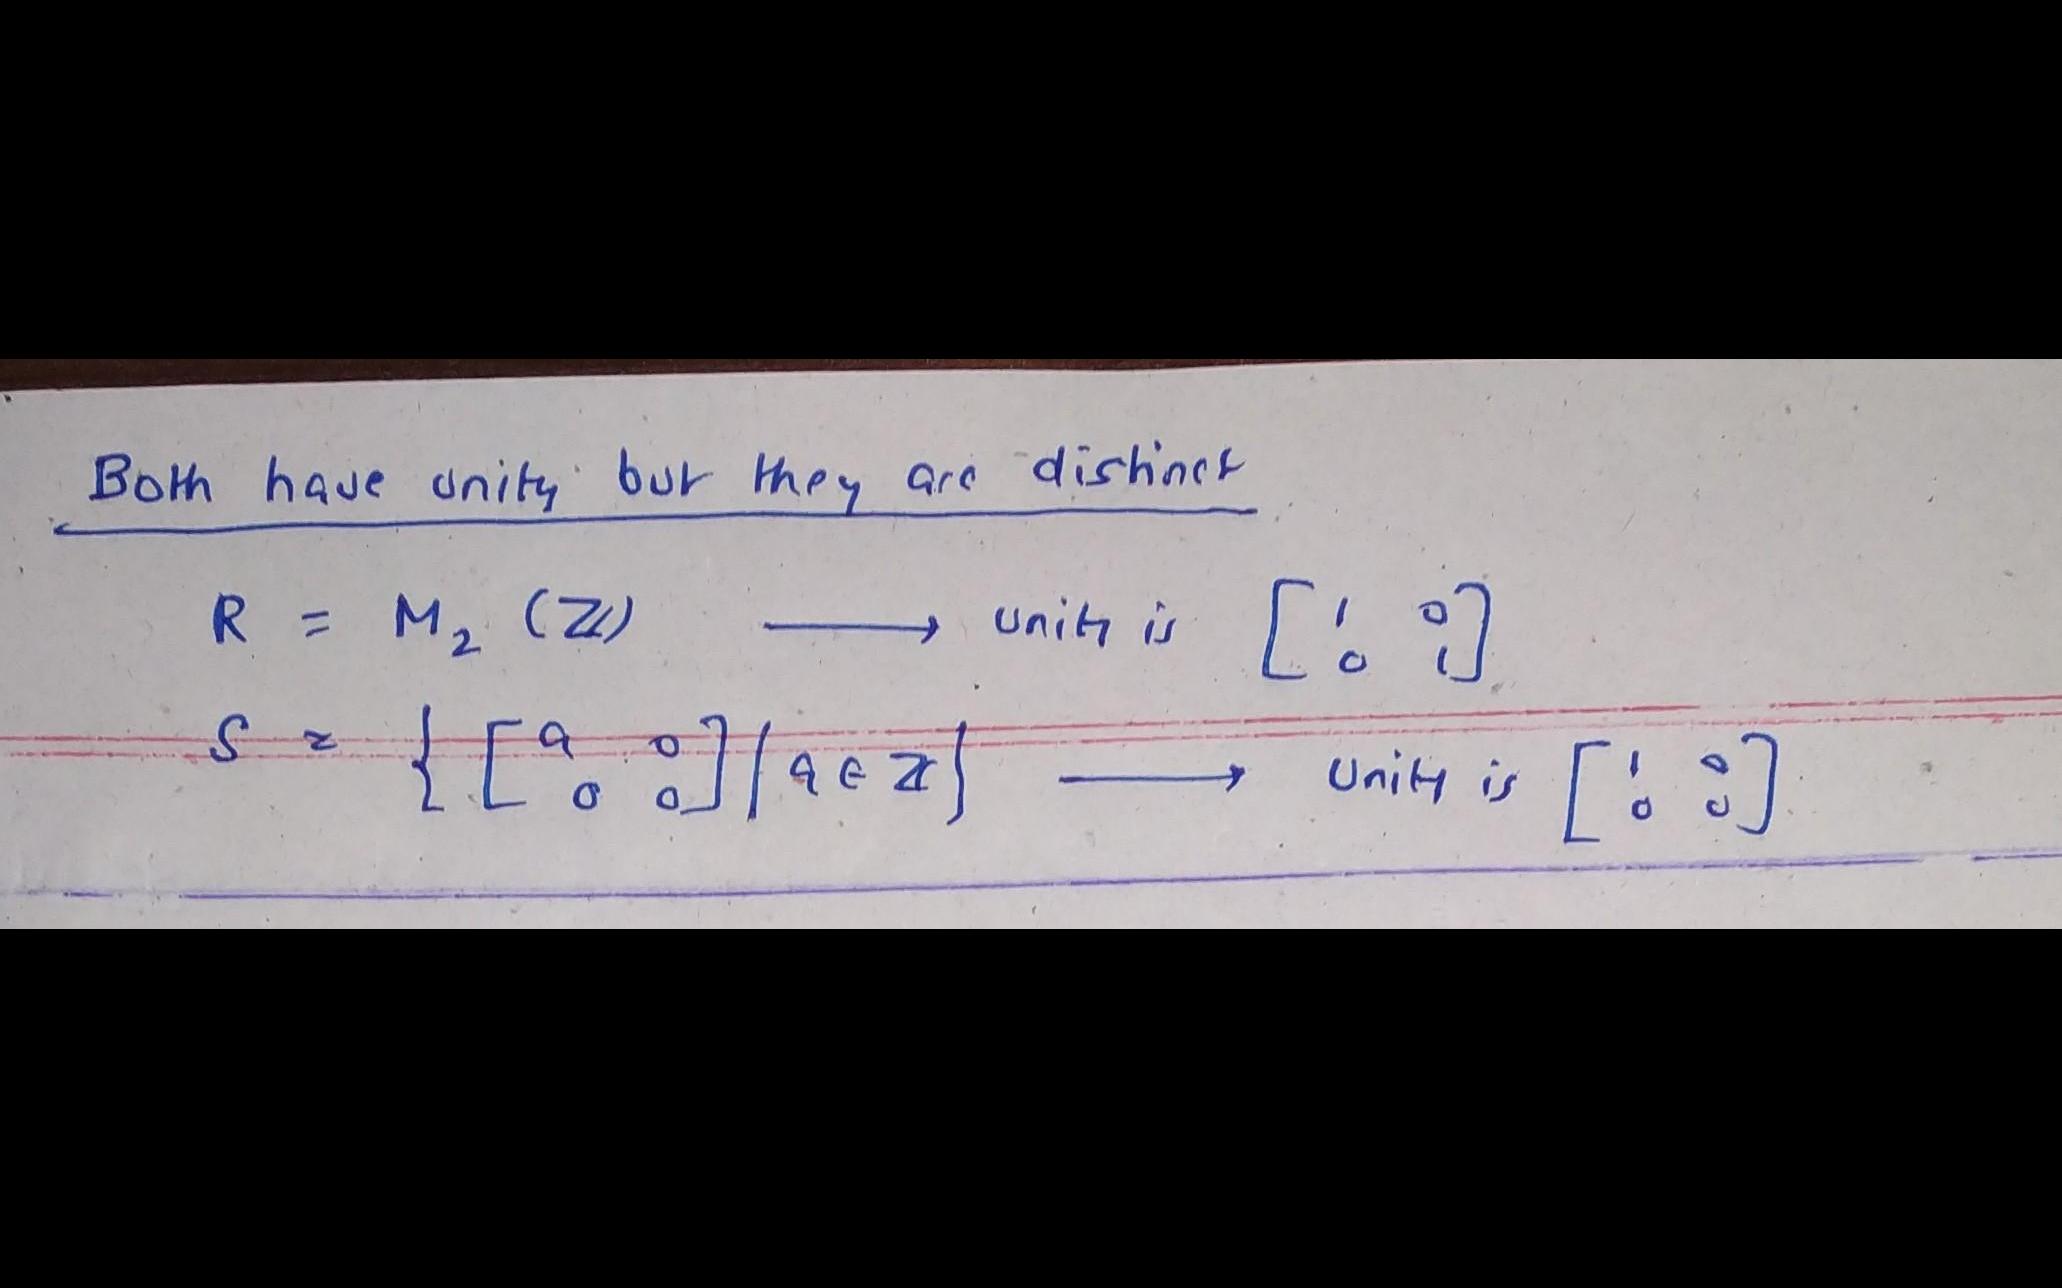 Both have unity but they are distinct
R = M₂ (ℤ) ⟶ unity is [1 0; 0 1]
S = { [a 0; 0 0] | a ∈ ℤ } ⟶ Unity is [1 0; 0 0]